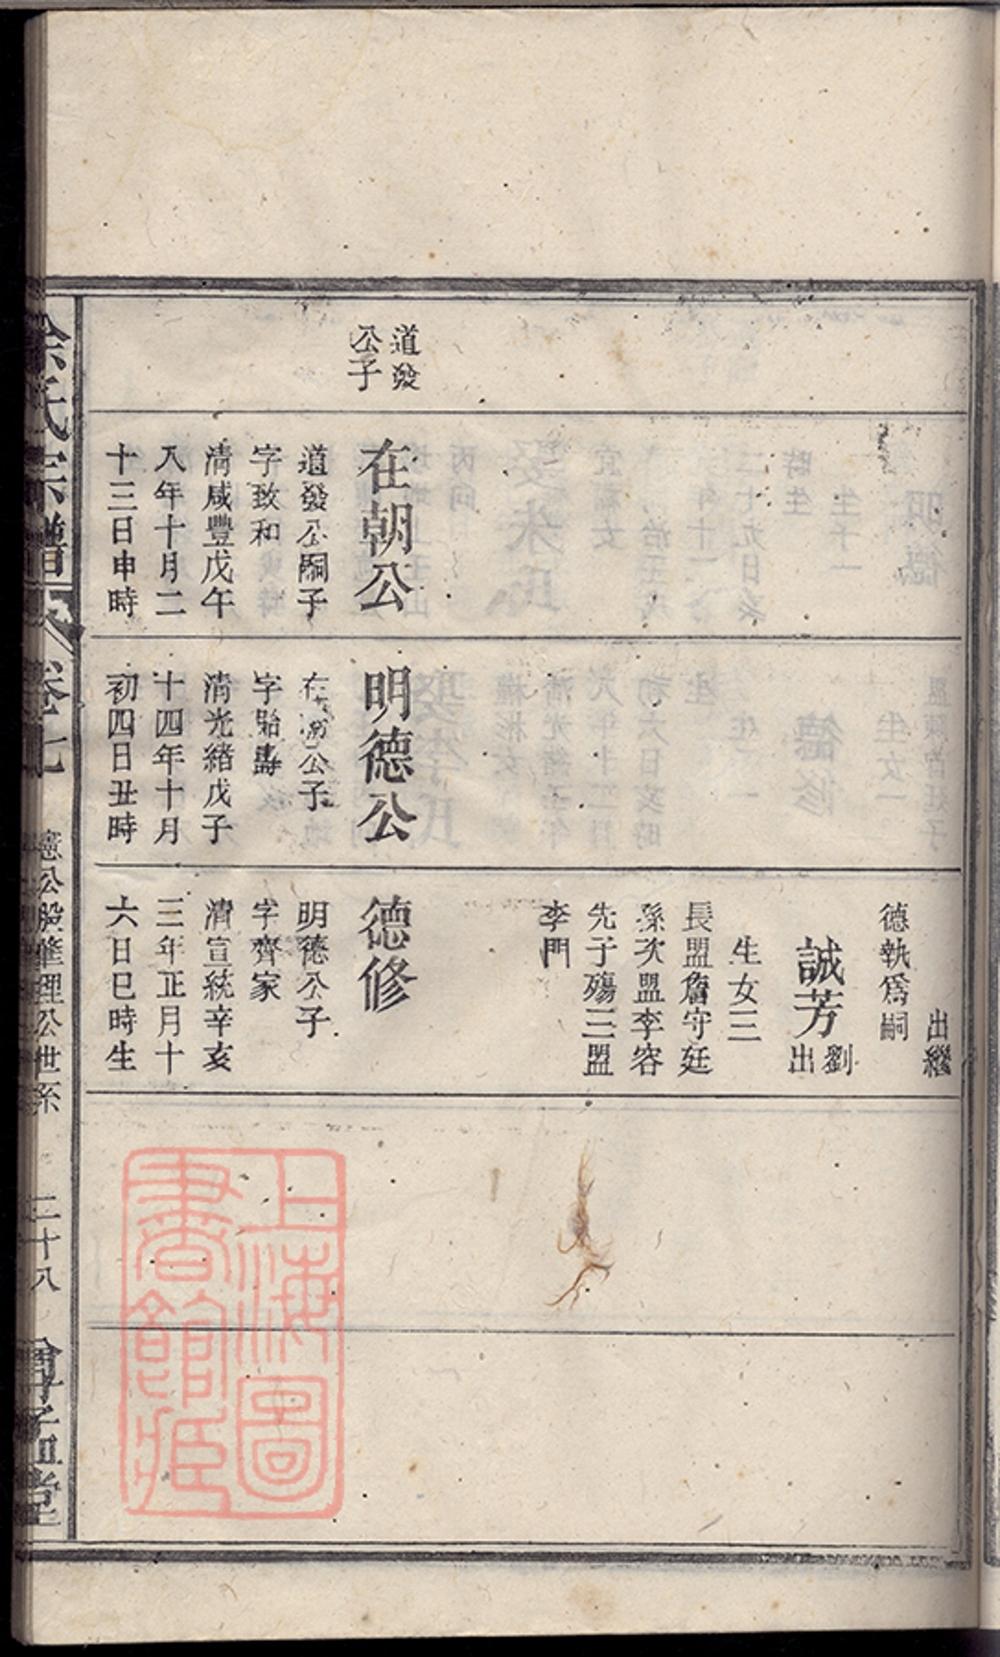 道發
公子
在朝公
道發公嗣子
字致和
清咸豐戊午
八年十月二
十三日申時
出繼
德執爲嗣
誠芳
劉
出
生女三
長盟詹守廷
孫次盟李容
先子殤三盟
李門
明德公
在朝公子
字貽壽
清光緒戊子
十四年十月
初四日丑時
德修
明德公子
字齊家
清宣統辛亥
三年正月十
六日巳時生
余氏宗譜
卷七
憲公股華理公世系
二十八
上海圖
書館藏